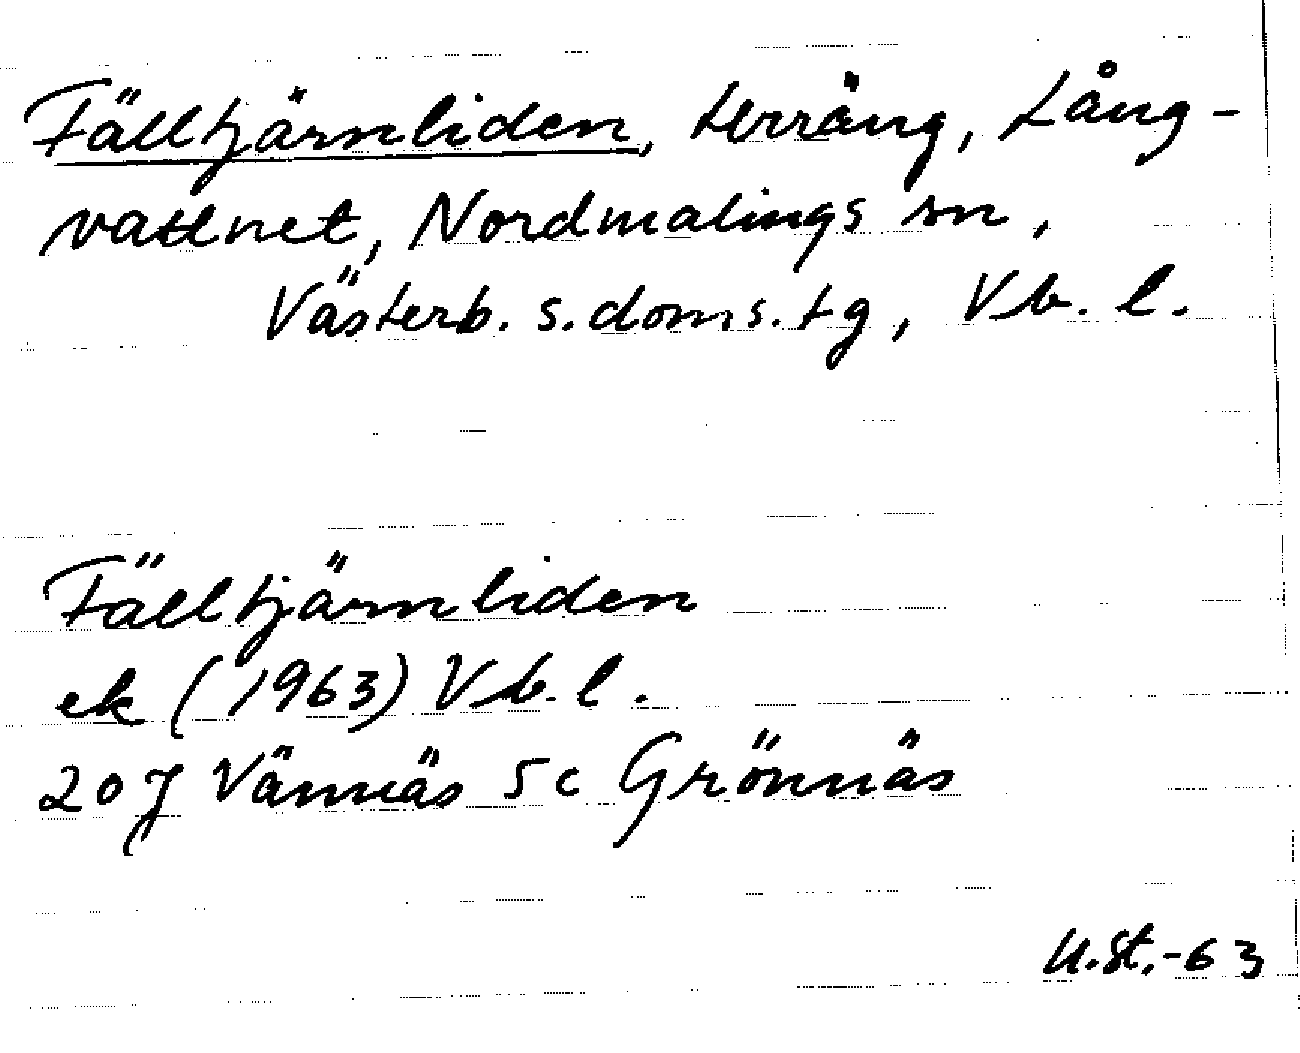 Fälltjärnliden, terräng, Lång-
vattnet, Nordmalings sn,
Västerb. s. doms. tg, Vb. l.
Fälltjärnliden
ek (1963) Vb. l.
20 J Vännäs 5c Grönnäs
U.St.-63